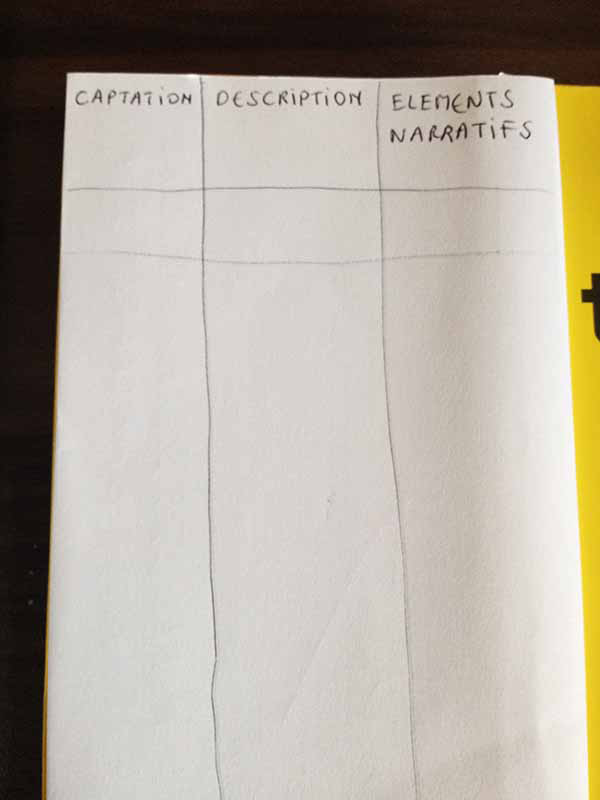 CAPTATION
DESCRIPTION
ELEMENTS
NARRATIFS
t